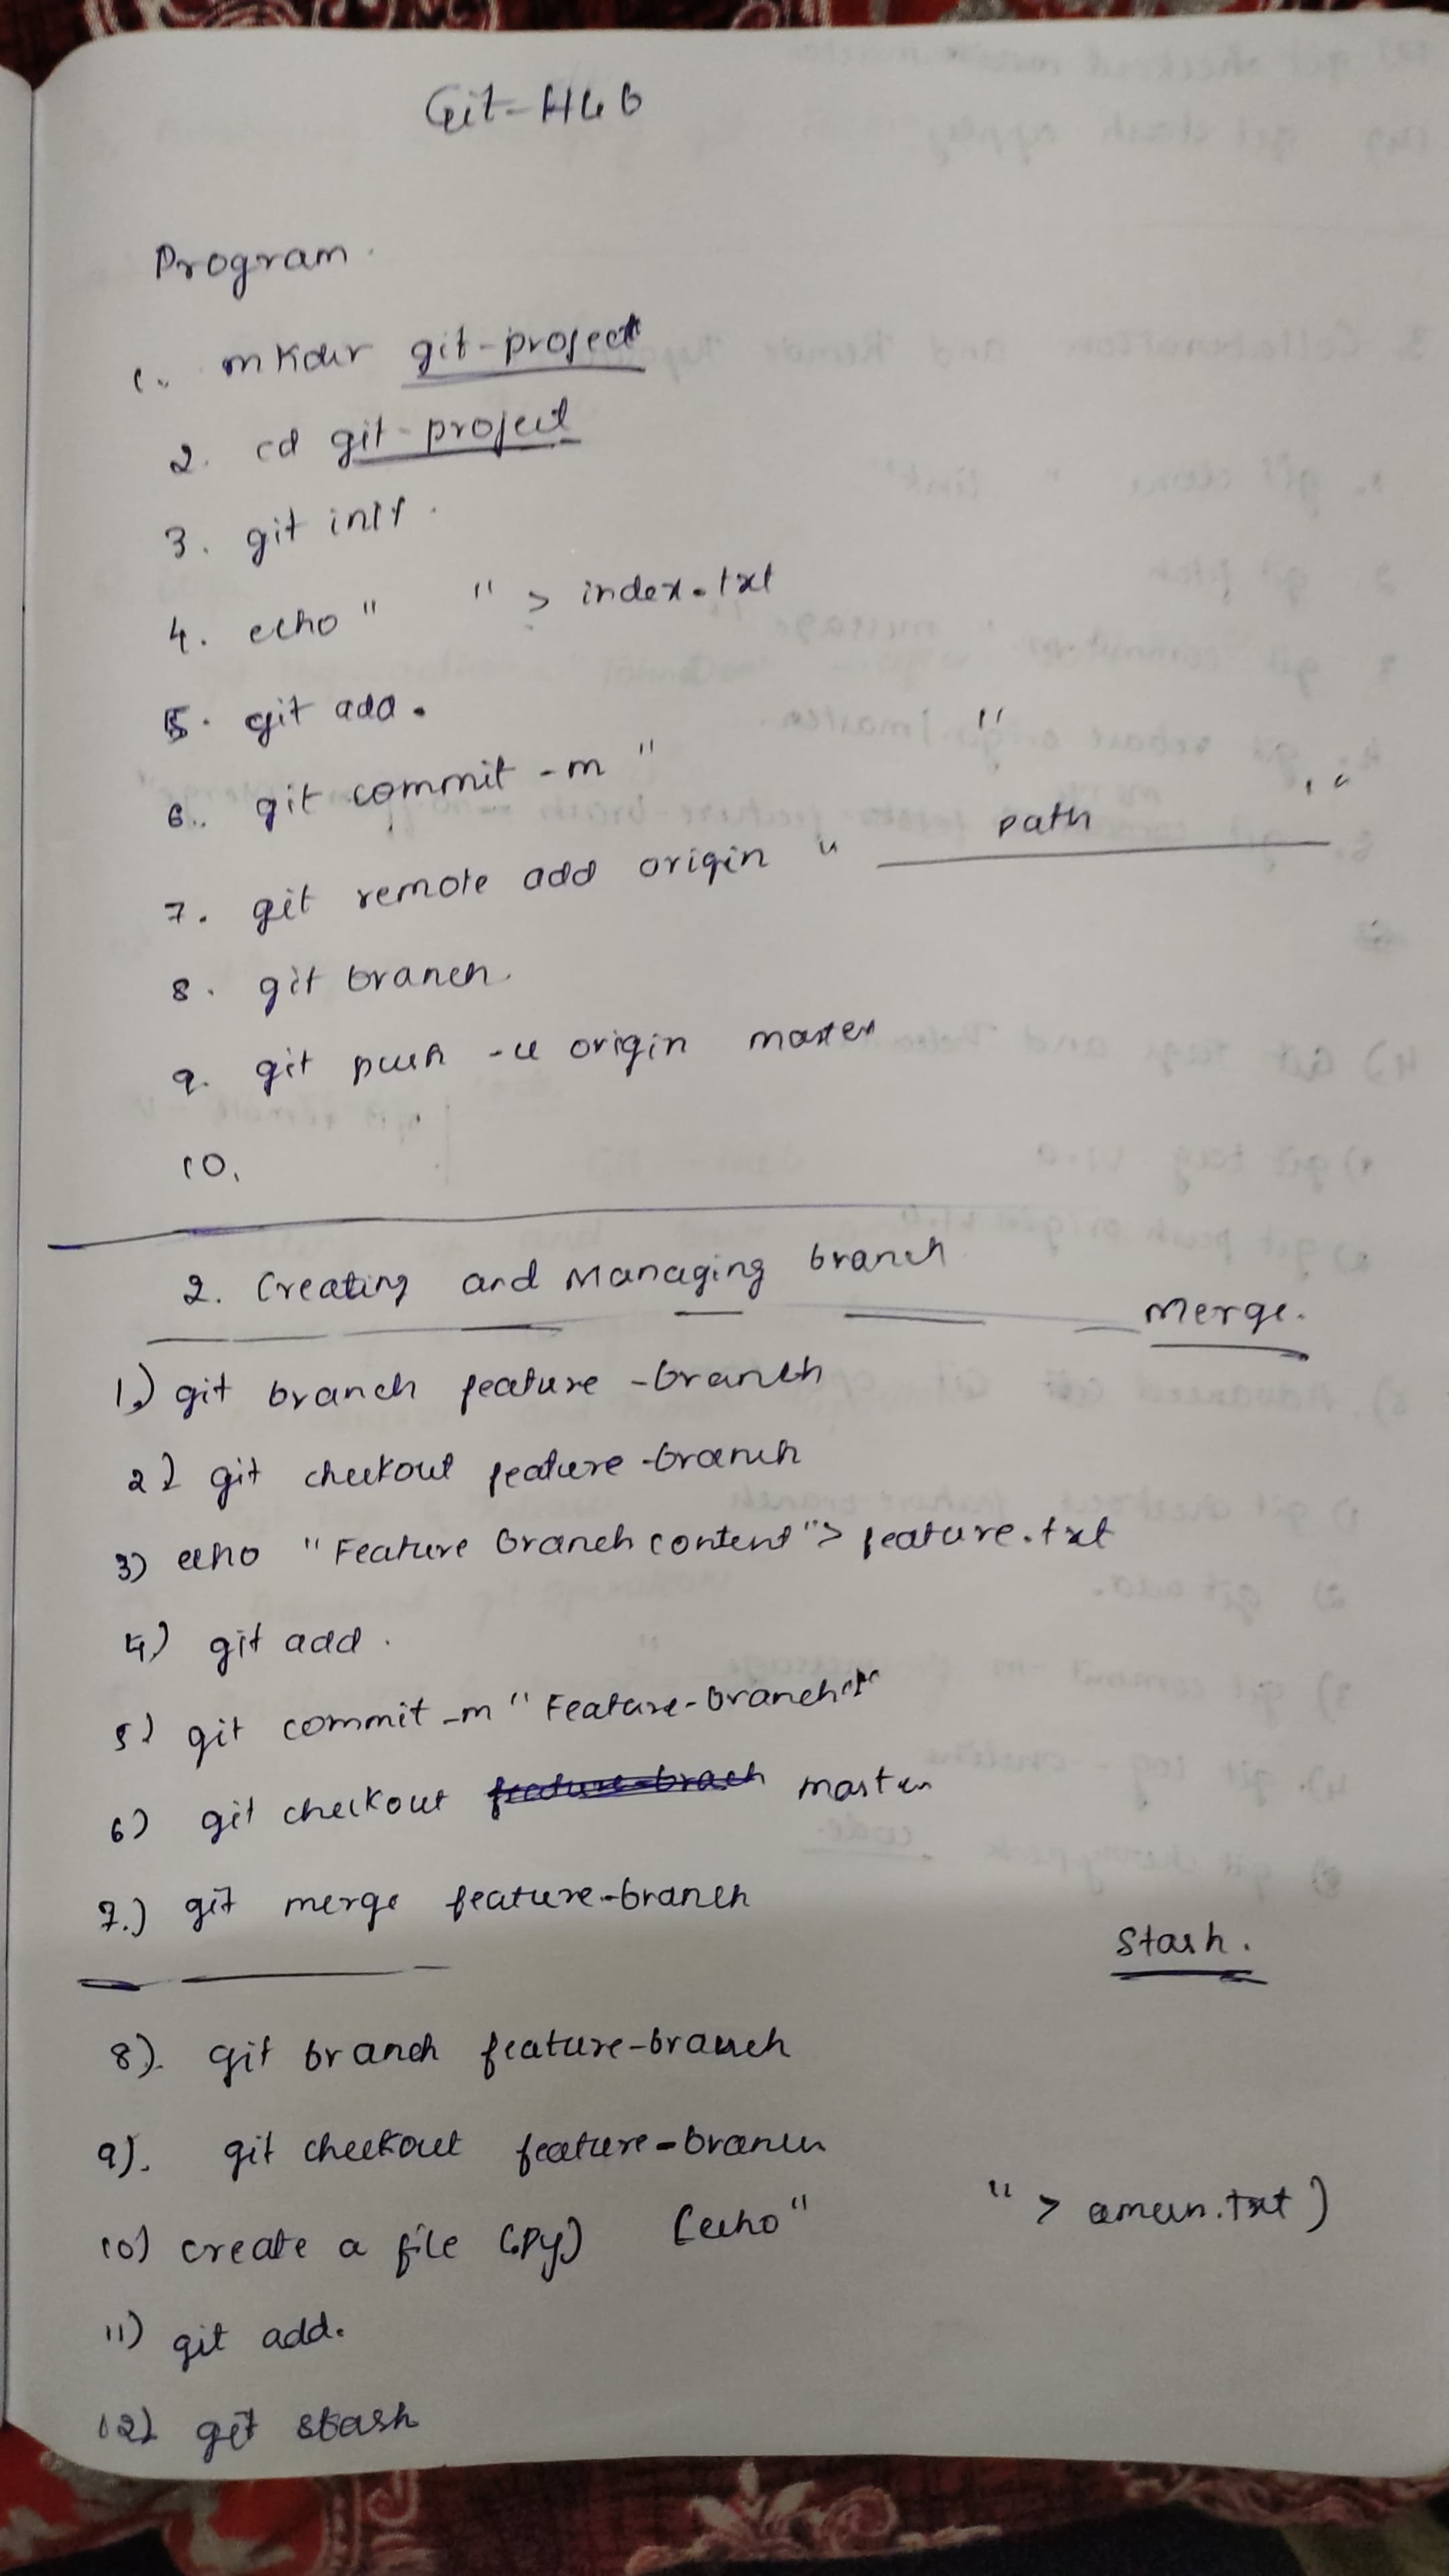 Git-Hub
Program.
1. mkdir git-project
2. cd git-project
3. git init.
4. echo "          " > index.txt
5. git add .
6. git commit -m "          "
7. git remote add origin " path "
8. git branch.
9. git push -u origin master
10.
2. Creating and Managing branch
Merge.
1.) git branch feature-branch
2) git checkout feature-branch
3) echo "Feature branch content" > feature.txt
4) git add .
5) git commit -m "Feature-branch"
6) git checkout feature-brach master
7.) git merge feature-branch
Stash.
8). git branch feature-branch
9). git checkout feature-branch
10) create a file (.py) [echo "          " > .txt)
11) git add.
12) git stash